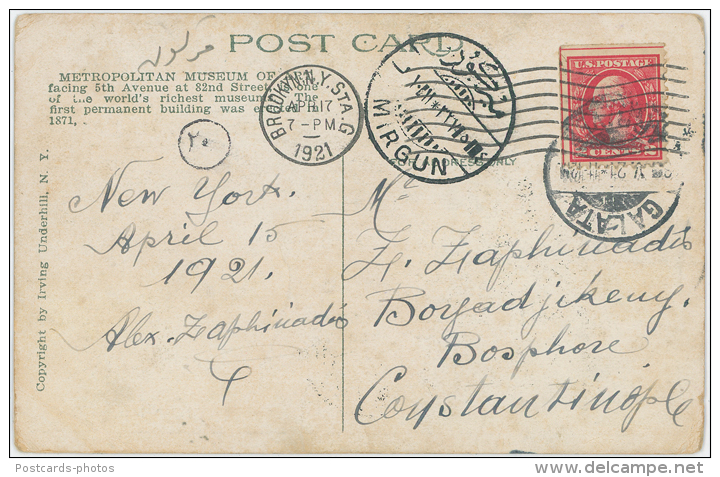 POST CARD
METROPOLITAN MUSEUM OF ART,
facing 5th Avenue at 82nd Street, is one
of the world's richest museums. The
first permanent building was erected
1871,
BROOKLYN, N.Y. STA. G
APR 17
7-PM
1921
MIRGUN
GALATA
U.S. POSTAGE
CENTS 2
ADDRESS ONLY
٢٠
New York.
April 15
1921.
Alex. Zaphiriadis
Mr
Z. Zaphiriadis
Boyadjikeuy.
Bosphore
Constantinople
Copyright by Irving Underhill, N. Y.
Postcards-photos
delcampe.net